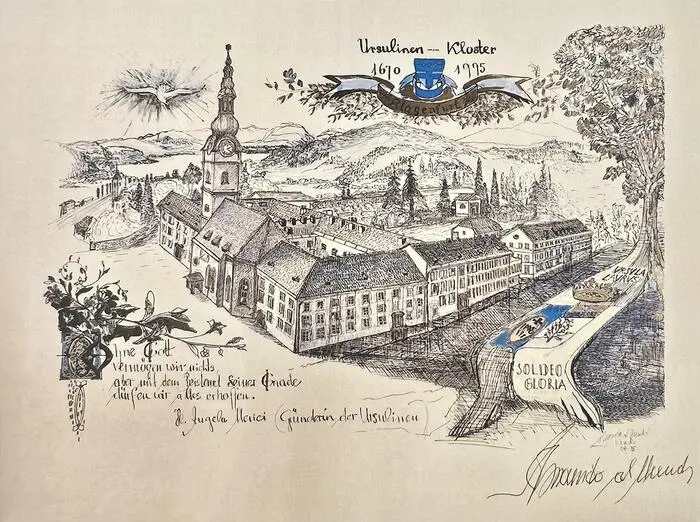 Ursulinen – Kloster
1670 1995
Klagenfurt
URSULA
SOLI DEO
GLORIA
Ohne Gott
vermögen wir nichts,
aber mit dem Beistand Seiner Gnade
dürfen wir alles erhoffen.
Hl. Angela Merici (Gründerin der Ursulinen)